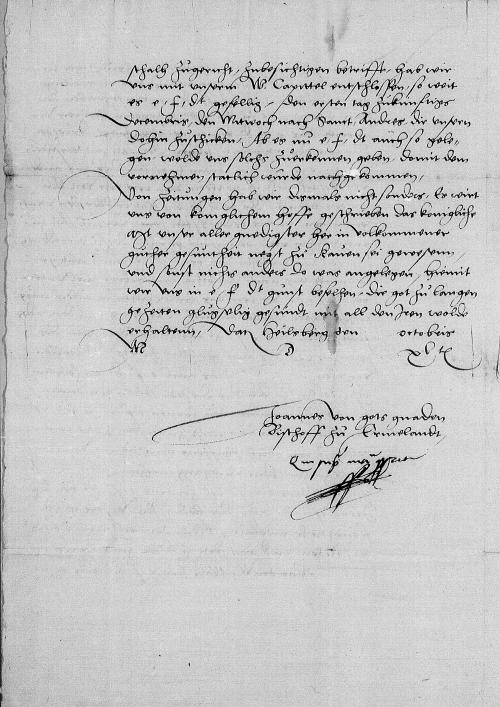 schalh zugericht, zubesichtigen betrifft, hab wir
uns mit unserm W Capittel entschlossen, so weit
es e f dt gefellig, den ersten tag zukunftigs
Decembris, den Mitwoch nach Sanct Andres die unsern
dohin zuschicken, Ab es nu e f dt auch so gele-
gen, wolde uns solchs zuerkennen geben, domit dem
vornehmen statlich wurde nachgekommen,
Von Zeitungen hab wir dismals nicht sonders, Es wirt
uns von koniglichem Hoffe geschrieben das konigliche
Mat unser aller gnedigster her in volkommener
guther gesuntheit negst zu Kauen sei gewesenn,
und sunst nichts anders do was angelegen, Hiemit
wir uns in e f dt gunst befelhen, die got zu langen
gezeiten gluckselig gesundt mit all den Iren wolde
erhaltenn, Dat Heilsberg den octobris
M D XL
Joannes von gots gnaden
Bischoff zu Ermelandt